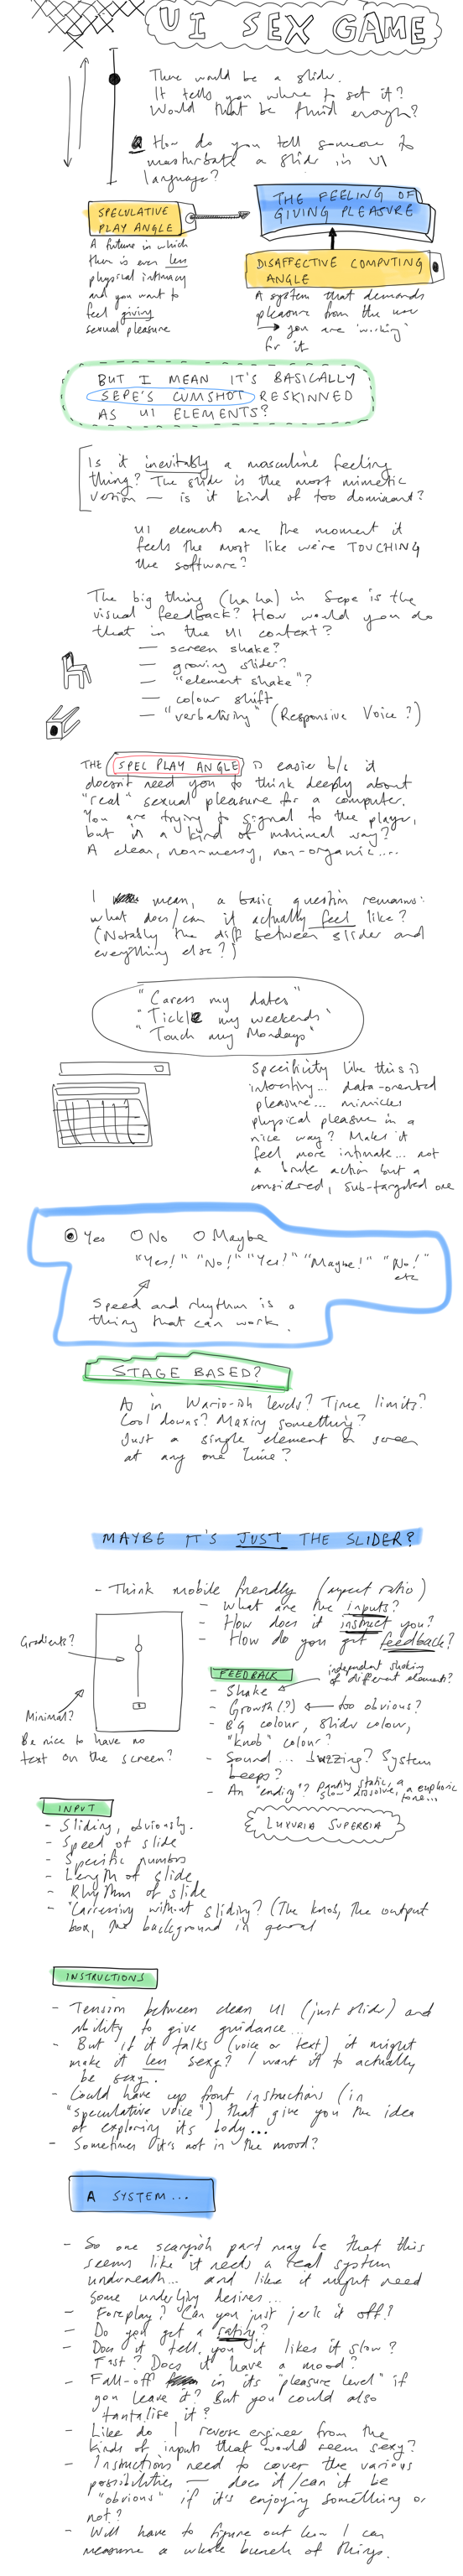 UI SEX GAME
There would be a slider.
It tells you where to set it?
Would that be fluid enough?
How do you tell someone to
masturbate a slider in UI
language?
SPECULATIVE
PLAY ANGLE
THE FEELING OF
GIVING PLEASURE
A future in which
there is even less
physical intimacy
and you want to
feel giving
sexual pleasure
DISAFFECTIVE COMPUTING
ANGLE
A system that demands
pleasure from the user
→ you are 'working'
for it
BUT I MEAN IT'S BASICALLY
SEPE'S CUMSHOT RESKINNED
AS UI ELEMENTS?
Is it inevitably a masculine feeling
thing? The slider is the most mimetic
version — is it kind of too dominant?
UI elements are the moment it
feels the most like we're TOUCHING
the software?
The big thing (ha ha) in Sepe is the
visual feedback? How would you do
that in the UI context?
— screen shake?
— growing slider?
— "element shake"?
— colour shift
— "verbalising" (Responsive Voice?)
THE SPEC PLAY ANGLE is easier b/c it
doesn't need you to think deeply about
"real" sexual pleasure for a computer.
You are trying to signal to the player,
but in a kind of minimal way?
A clean, non-messy, non-organic....
I mean, a basic question remains:
what does/can it actually feel like?
(Notably the diff between slider and
everything else?)
"Caress my dates"
"Tickle my weekends"
"Touch my Mondays"
Specificity like this is
interesting... data-oriented
pleasure... mimicks
physical pleasure in a
nice way? Makes it
feel more intimate... not
a brute action but a
considered, sub-targeted one
Yes No Maybe
"Yes!" "No!" "Yes?" "Maybe!" "No!"
etc
Speed and rhythm is a
thing that can work.
STAGE BASED?
As in Wario-ish levels? Time limits?
Cool downs? Maxing something?
Just a single element on screen
at any one time?
MAYBE IT'S JUST THE SLIDER?
- Think mobile friendly (aspect ratio)
- What are the inputs?
- How does it instruct you?
- How do you get feedback?
Gradients?
Minimal?
Be nice to have no
text on the screen?
FEEDBACK
independent shaking
of different elements?
- Shake
- Growth(?) ← too obvious?
- BG colour, slider colour,
"knob" colour?
- Sound... buzzing? System
beeps?
- An "ending"? static, a
slow dissolve, a euphoric
tone...
LUXURIA SUPERBIA
INPUT
- Sliding, obviously.
- Speed of slide
- Specific numbers
- Length of slide
- Rhythm of slide
- "Carressing" without sliding? (The knob, the output
box, the background in general
INSTRUCTIONS
- Tension between clean UI (just slider) and
ability to give guidance...
- But if it talks (voice or text) it might
make it less sexy? I want it to actually
be sexy.
- Could have up front instructions (in
"speculative voice") that give you the idea
of exploring its body...
- Sometimes it's not in the mood?
A SYSTEM...
- So one scaryish part may be that this
seems like it needs a real system
underneath... and like it might need
some underlying desires...
- Foreplay? Can you just jerk it off?
- Do you get a rating?
- Does it tell you it likes it slow?
Fast? Does it have a mood?
- Fall-off in its "pleasure level" if
you leave it? But you could also
tantalise it?
- Like do I reverse engineer from the
kinds of inputs that would seem sexy?
- Instructions need to cover the various
possibilities — does it/can it be
"obvious" if it's enjoying something or
not?
- Will have to figure out how I can
measure a whole bunch of things.